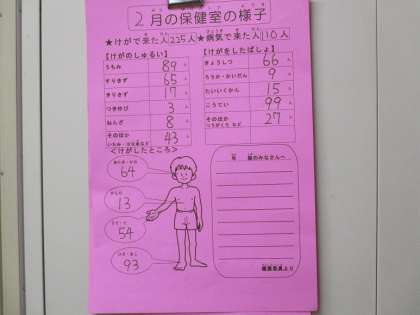 2月の保健室の様子
★けがで来た人225人★病気で来た人110人
【けがのしゅるい】
うちみ 89人
すりきず 65人
きりきず 17人
つきゆび 3人
ねんざ 8人
そのほか 43人
【けがをしたばしょ】
きょうしつ 66人
ろうか・かいだん 9人
たいいくかん 15人
こうてい 99人
そのほか 27人
つうがくろ など
<けがしたところ>
あたま・かお
64
13
54
93
年 組のみなさんへ
保健委員より